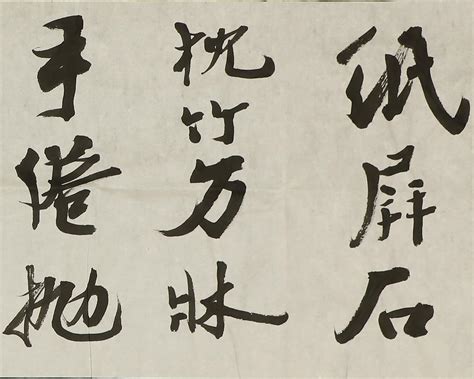 紙屏石
枕竹方牀
手倦抛